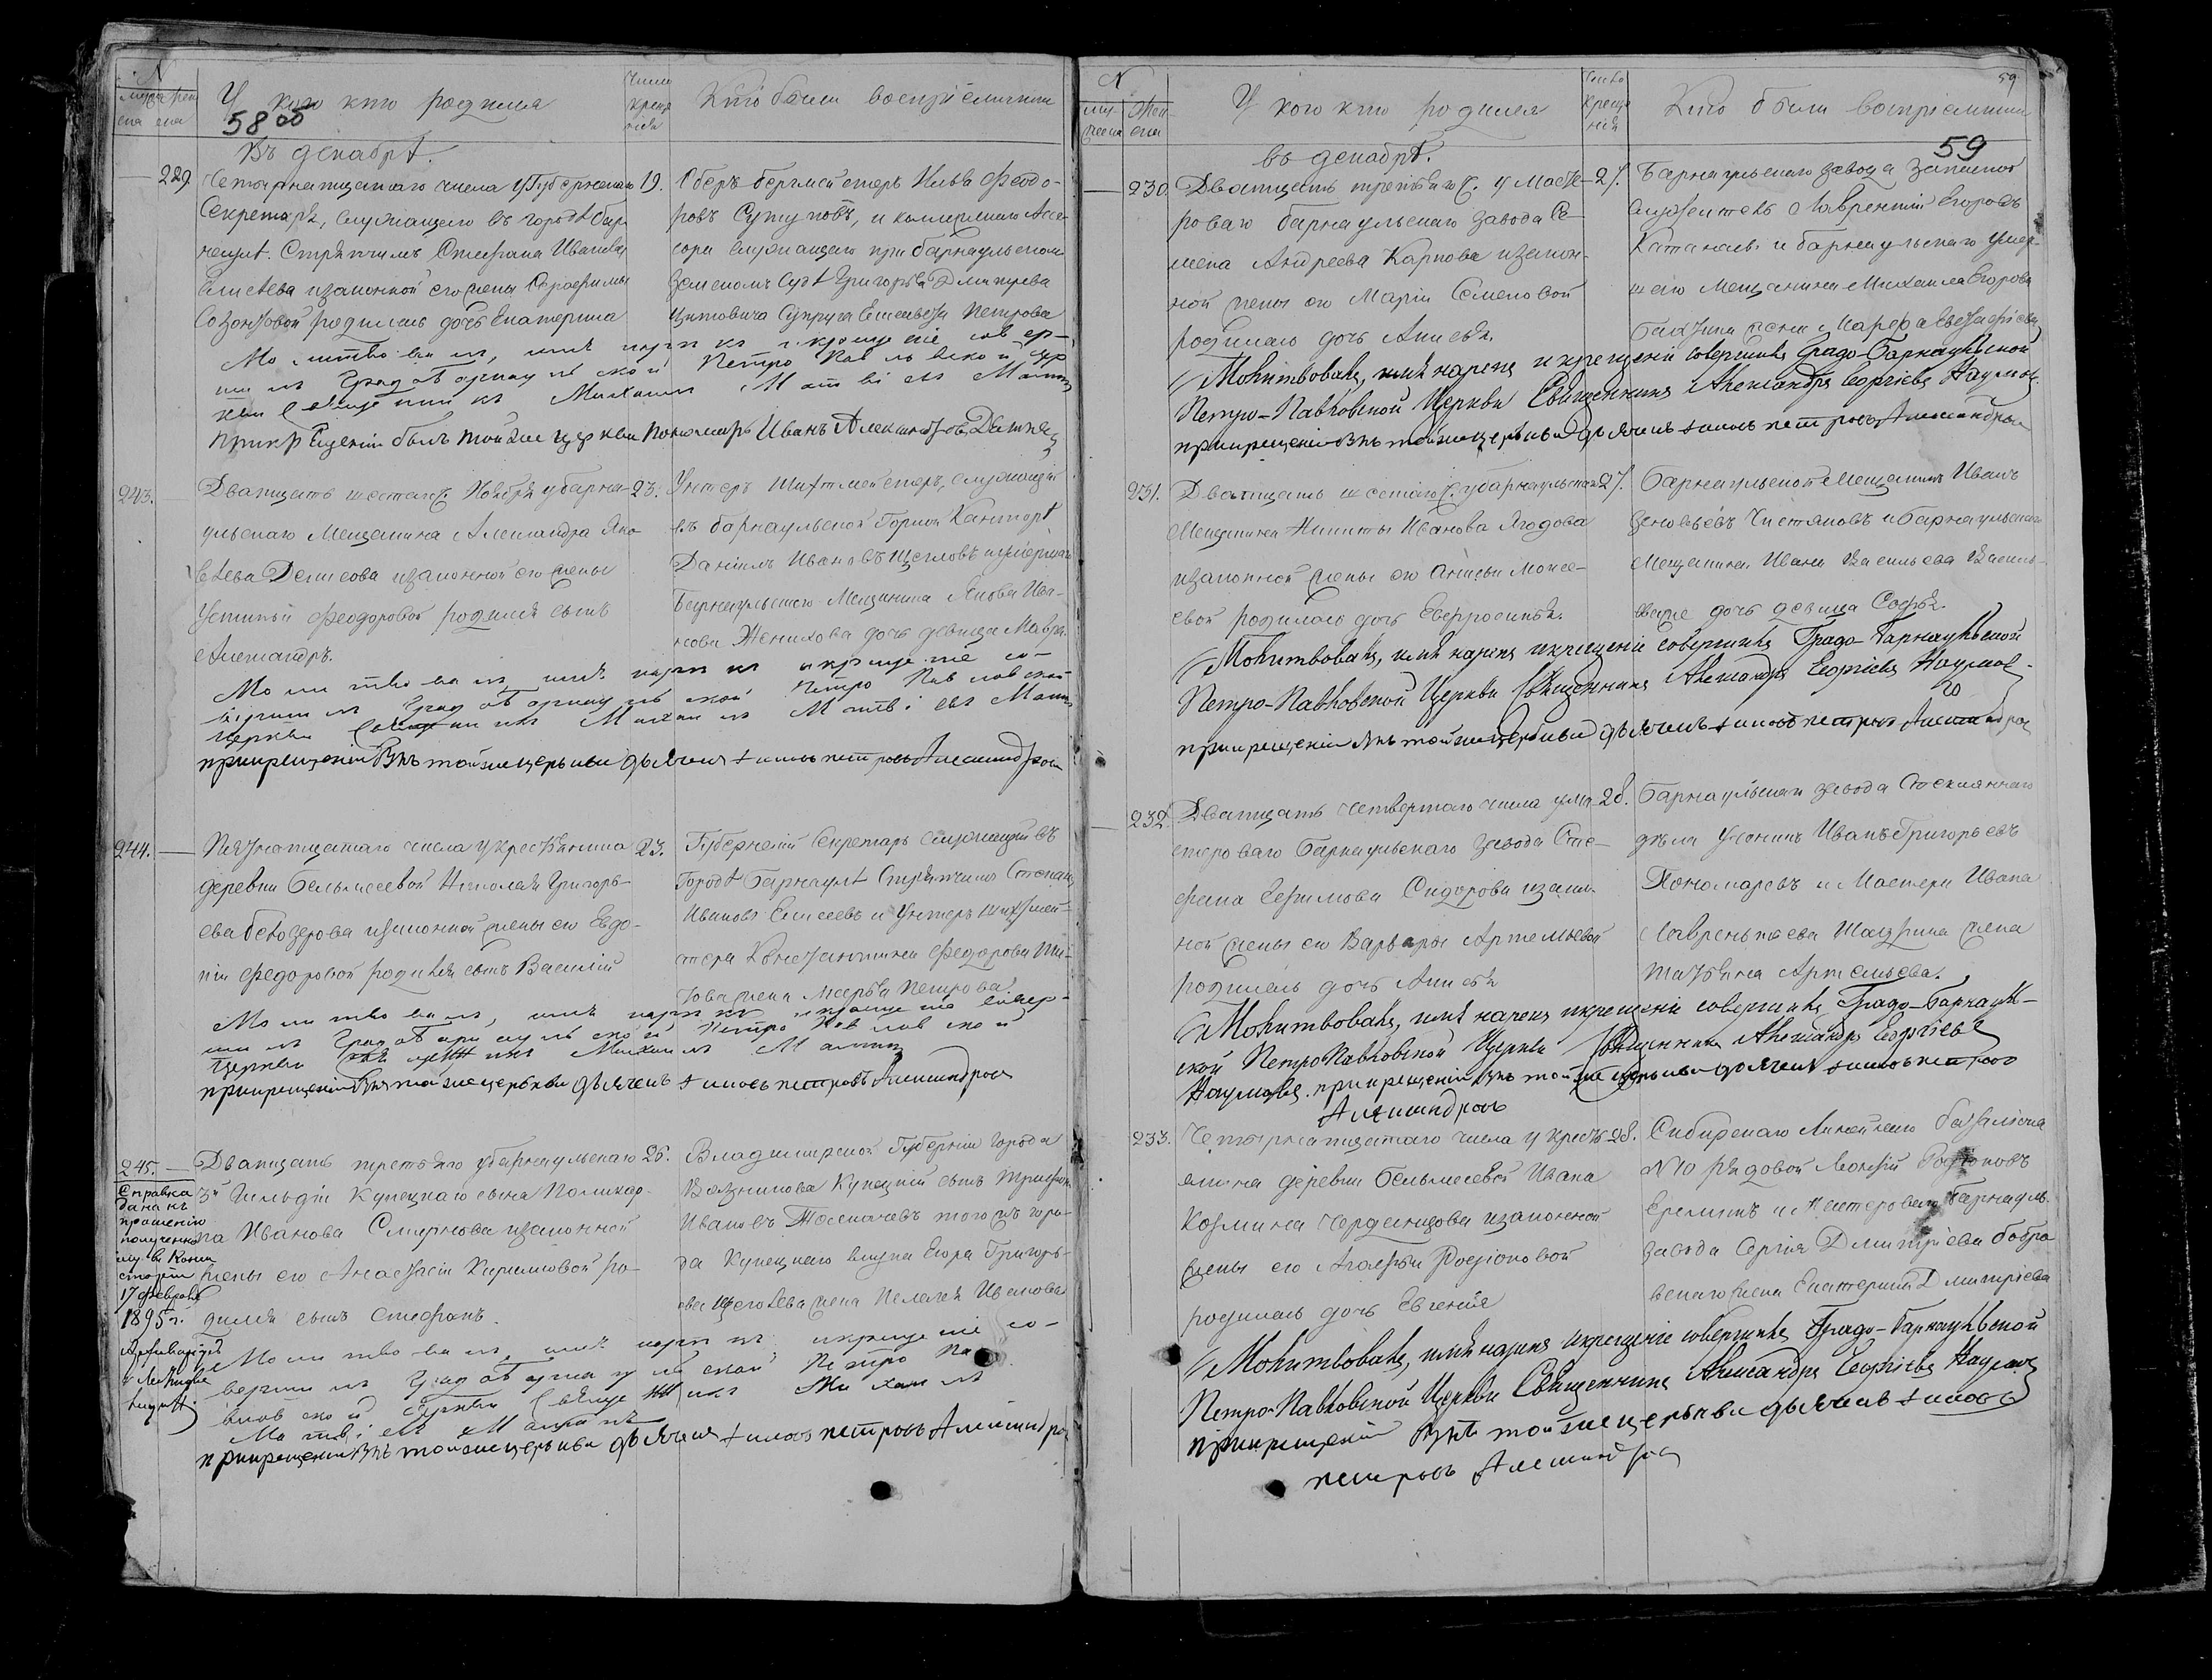 N
У кого кто родился
Число креще нія
Кто были воспріемники
58 об
Въ декабрѣ.
229.
Четырнатцатаго числа у Губернскаго
19.
Секретаря, служащего въ городѣ Бар
наулѣ Стряпчимъ Стефана Иванова
Елисѣева изаконной его жены Серафимы
Созонтовой родилась дочь Екатерина
Оберъ-бергмейстеръ Илья Феодо-
ровъ Сутуловъ, и коллежскаго Ассе-
сора служащего при барнаульскомъ
Земскомъ Судѣ Григорья Дмитрева
супруга Елисавета Петрова
Молитвовалъ, имя нарекъ и крещеніе совер-
шилъ Градобарнаульской Петро Павловской цер
кви Священникъ Михаилъ Матвіевъ
при крещеніи былъ той же церкви пономарь Иванъ Александровъ
243.
Дватцать шестаго Ноября у барна-
23.
ульскаго Мещанина Александра Яко
влева Денисова изаконной его жены
Устиньи Феодоровой родился сынъ
Александръ.
Унтеръ Шихтмейстеръ, служащій
въ барнаульской Горной Канторѣ
Даніилъ Ивановъ Щегловъ и умершаго
Барнаульского Мещанина Якова Ива-
нова Женихова дочь девица Мавра.
Молитвовалъ, имя нарекъ и крещеніе со-
вершилъ Градобарнаульской Петро Павловской
церкви Священникъ Михаилъ Матвіевъ
при крещеніи былъ той же церкви дьячекъ петровъ Александровъ
244.
Пятнатцатаго числа у крестьянина
23.
деревни Бельмесевой Николая Григорь-
ева Белозерова изаконной жены его Евдо-
кіи Федоровой родился сынъ Василій
Губернскій Секретарь служащій въ
Городѣ Барнаулѣ Стряпчимъ Степанъ
Ивановъ Елисеевъ и Унтеръ шихтмей-
стера Константина Федорова
жена Марья Петрова
Молитвовалъ, имя нарекъ и крещеніе совер-
шилъ Градобарнаульской Петро Павловской
церкви Священникъ Михаилъ
при крещеніи былъ той же церкви дьячекъ петровъ Александровъ
245.
Дватцать третьяго у барнаульскаго
26.
3й Гильдіи Купецкаго сына Поликар-
па Иванова Смирнова изаконной
жены его Анастасіи Кириловой ро-
дился сынъ Стефанъ.
Владимирской Губерніи города
Вязникова Купецкій сынъ Трифонъ
Ивановъ Толмачевъ того жъ горо-
да Купецкаго внука Егора Григорь-
ева Щеголева жена Пелагея Иванова
Справка
дана къ
прошенію
полученно
му въ Конси
сторіи
17 февраля
1895 г.
Молитвовалъ, имя нарекъ и крещеніе со-
вершилъ Градобарнаульской Петро Па
вловской Церкви Священникъ Михаилъ
Матвіевъ
при крещеніи былъ той же церкви дьячекъ петровъ Александровъ
N
У кого кто родился
Число креще нія
Кто были воспріемники
59
въ декабрѣ.
59
230.
Дватцать третьяго ч. у Масте-
27.
роваго барнаульскаго завода Се-
мена Андреева Карпова изакон-
ной жены его Маріи Семеновой
родилась дочь Анисья.
Барнаульскаго завода запасной
служитель Лаврентій Егоровъ
Катанаевъ и барнаульскаго умер-
шего Мещанина Михаила Егорова
жена Марфа
Молитвовалъ, имя нарекъ и крещеніе совершилъ Градо-Барнаульской
Петро-Павловской Церкви Священникъ Александръ Георгіевъ Наумовъ
при крещеніи былъ той же церкви дьячекъ петровъ Александровъ
231.
Дватцать шестаго ч. у барнаульскаго
27.
Мещанина Никиты Иванова Ягодова
изаконной жены его Анисьи Моисе-
евой родилась дочь Евфросинья.
Барнаульской Мещанинъ Иванъ
Зеновьевъ Чистяковъ и барнаульскаго
Мещанина Ивана Васильева Василь-
дочь девица Софья.
Молитвовалъ, имя нарекъ и крещеніе совершилъ Градо-Барнаульской
Петро-Павловской Церкви Священникъ Александръ Георгіевъ Наумовъ
при крещеніи былъ той же церкви дьячекъ петровъ Александровъ
232.
Дватцать четвертаго числа у ма-
28.
стероваго Барнаульскаго завода Сте-
фана Ефимова Сидорова изакон
ной жены его Варвары Артемьевой
родилась дочь Анисья
Барнаульскаго завода Стекляннаго
дѣла ученикъ Иванъ Григорьевъ
Пономаревъ и Мастера Ивана
Лаврентьева Шадрина жена
Татьяна Артемьева.
Молитвовалъ, имя нарекъ и крещеніе совершилъ Градо-Барнауль-
ской Петро Павловской Церкви Священникъ Александръ Георгіевъ
Наумовъ. при крещеніи былъ той же церкви дьячекъ петровъ
Александровъ
233.
Четырнатцатаго числа у кресть-
28.
янина деревни Бельмесевой Ивана
Козмина Чердынцова изаконной
жены его Агафьи Родіоновой
родилась дочь Евгенія
Сибирскаго Линейнаго баталіона
№10 рядовой
и Мастероваго Барнауль.
завода Сергія Дмитріева Бобро
вскаго жена Екатерина Дмитріева
Молитвовалъ, имя нарекъ и крещеніе совершилъ Градо-Барнаульской
Петро-Павловской Церкви Священникъ Александръ Георгіевъ Наумовъ
при крещеніи былъ той же церкви дьячекъ
петровъ Александровъ